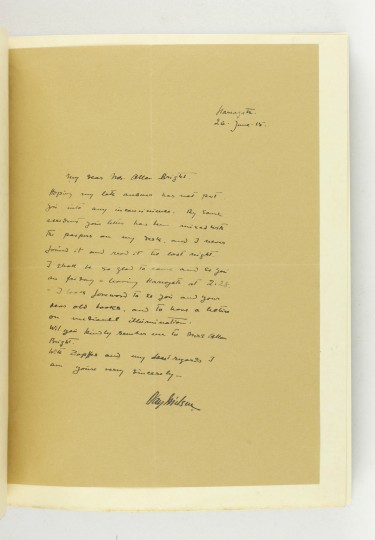 Harrogate.
26. June. 15.
My dear Mr. Allan Bright.
Hoping my late answer has not put
you into any inconvenience. By some
accident you letter has been mixed with
the papers on my desk, and I never
found it and read it till last night
I shall be so glad to come and see you
on friday - leaving Harrogate at 2.23.
- I look forward to see you and your
dear old books, and to have a lecture
on mediaeval illumination.
Will you kindly remember me to Mrs. Allan
Bright.
With and my best regards I
am yours very sincerely -
Kay Nielsen,